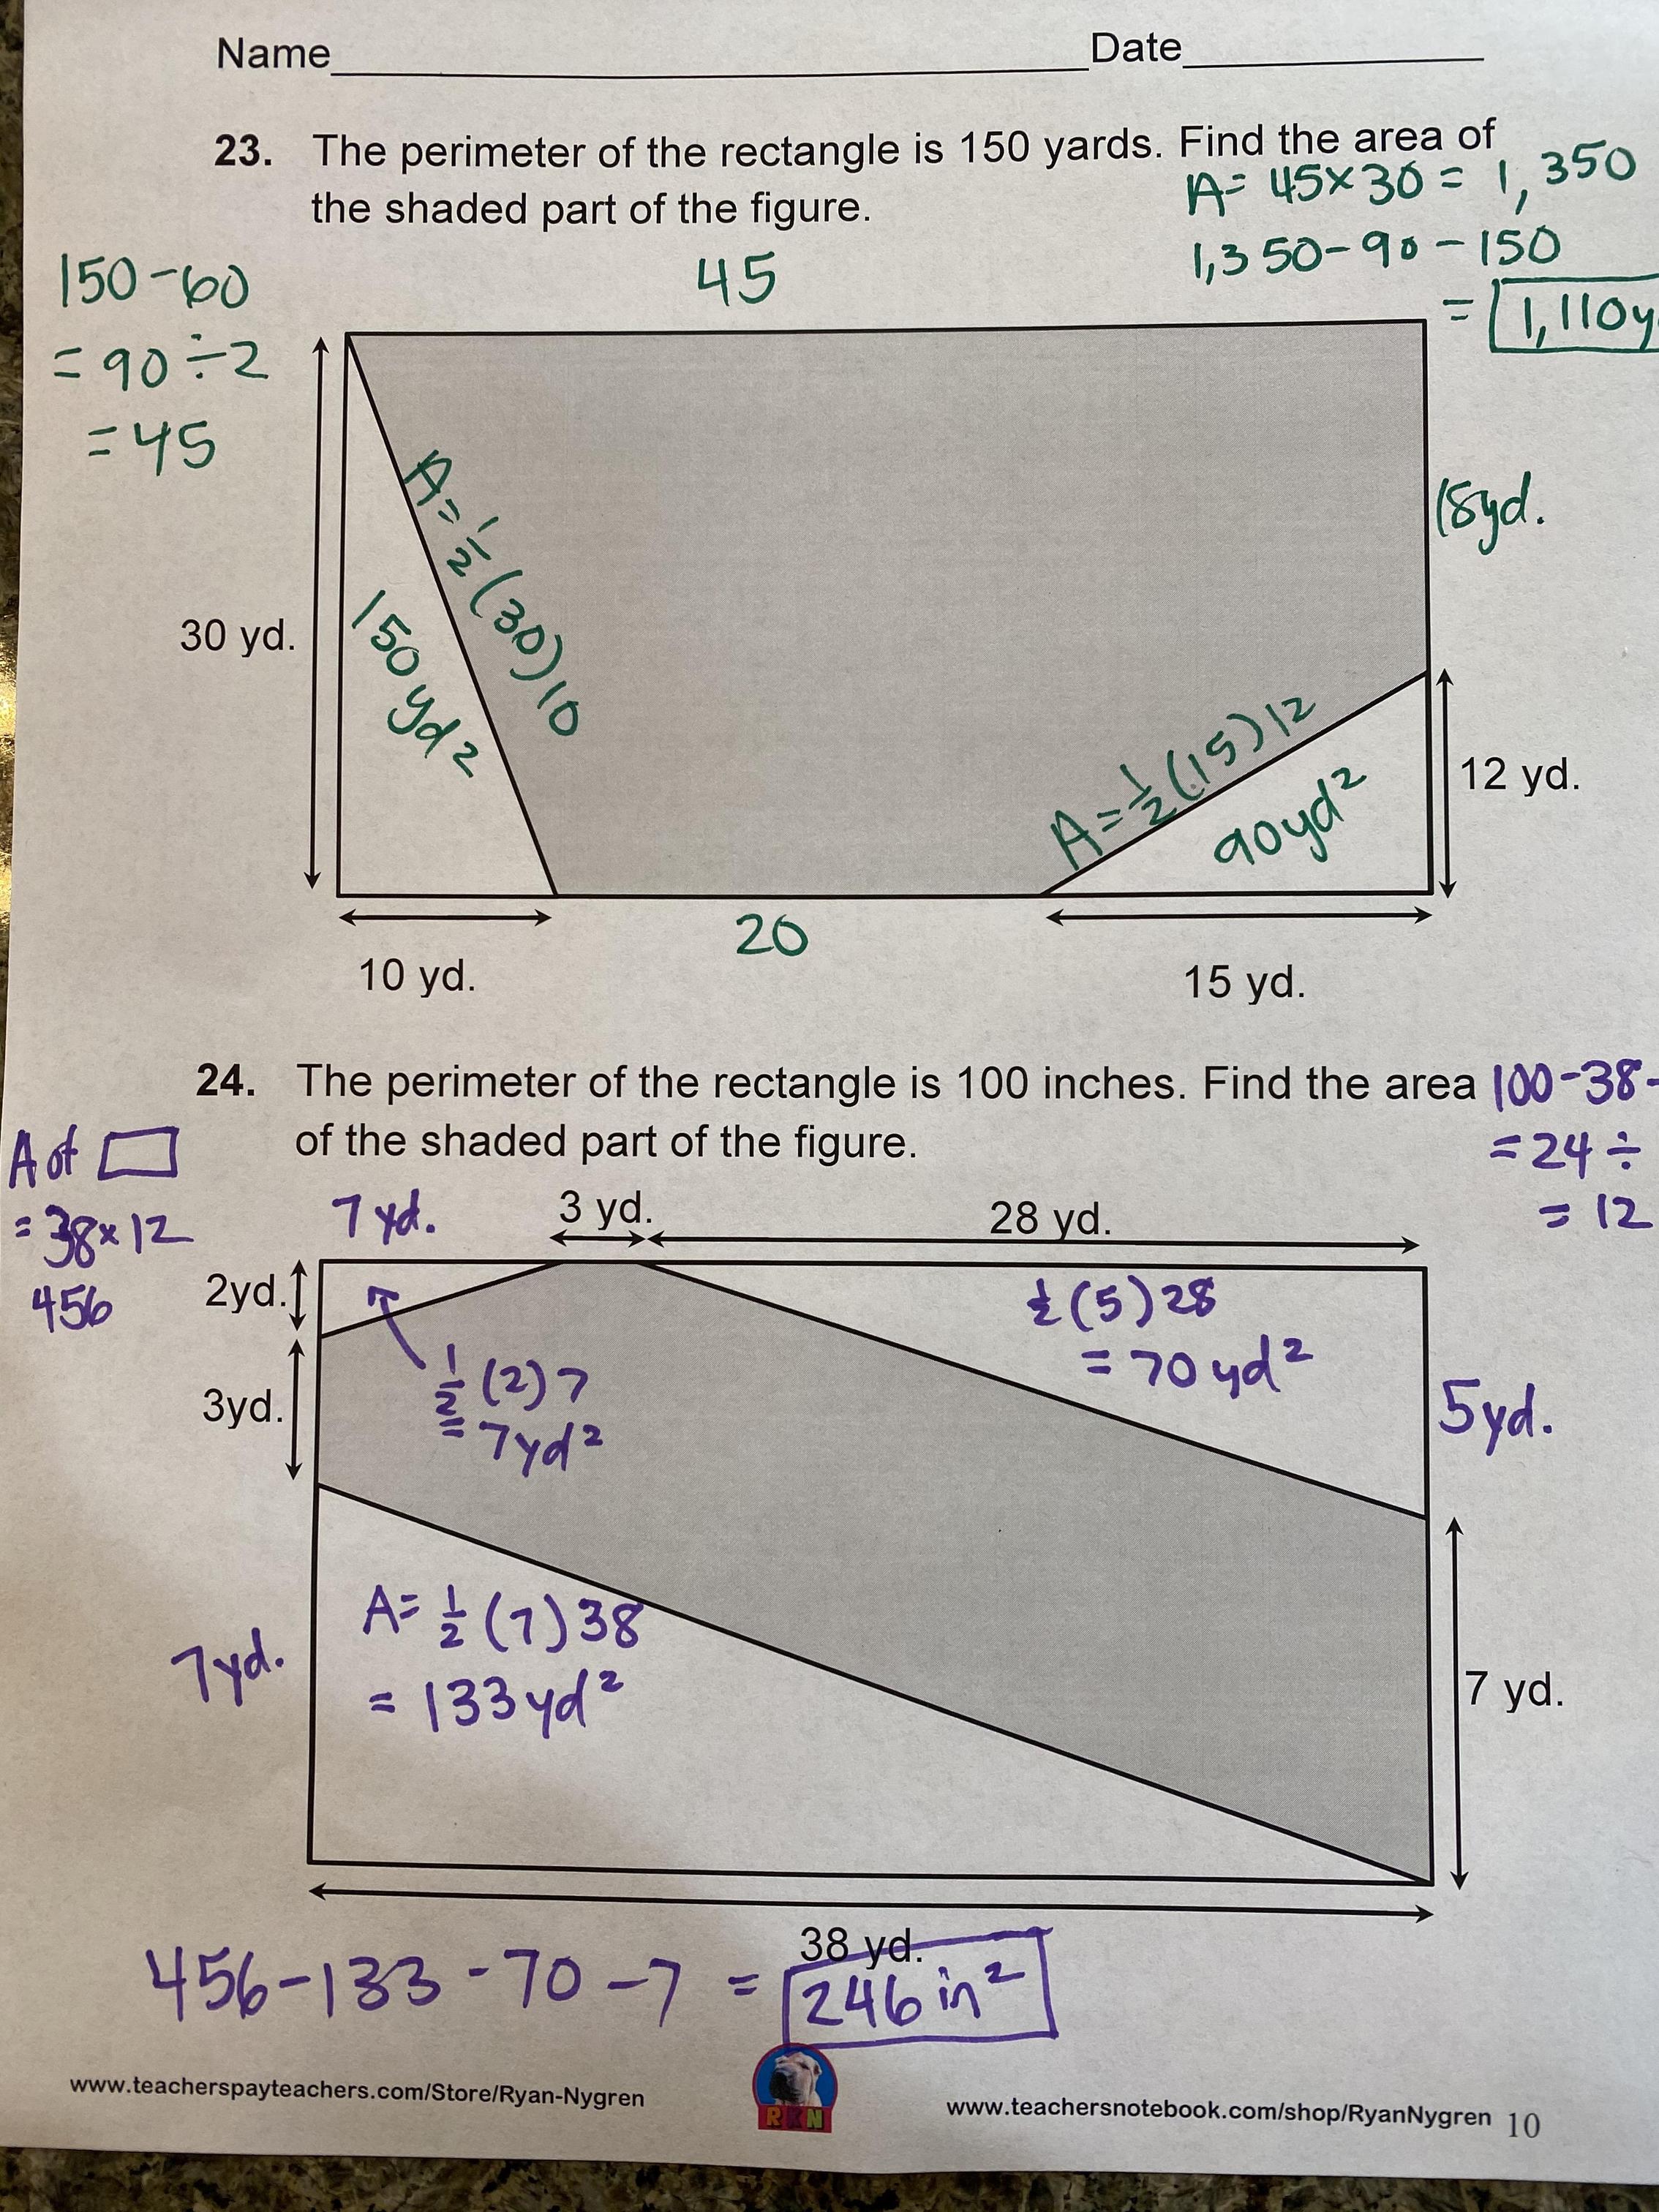 Name Date
23. The perimeter of the rectangle is 150 yards. Find the area of
the shaded part of the figure.
A= 45×30 = 1,350
1,350-90-150
= 1,110y
150-60
= 90÷2
= 45
45
18yd.
A=1/2(30)10
150yd²
30 yd.
A=1/2(15)12
90yd²
12 yd.
20
10 yd.
15 yd.
24. The perimeter of the rectangle is 100 inches. Find the area
of the shaded part of the figure.
100-38-
=24÷
= 12
A of
= 38×12
456
7 yd.
3 yd.
28 yd.
2yd.
1/2(5)28
= 70yd²
3yd.
1/2(2)7
= 7yd²
5yd.
A= 1/2(7)38
= 133yd²
7yd.
7 yd.
38 yd.
456-133-70-7 = 246in²
RKN
www.teacherspayteachers.com/Store/Ryan-Nygren
www.teachersnotebook.com/shop/RyanNygren 10